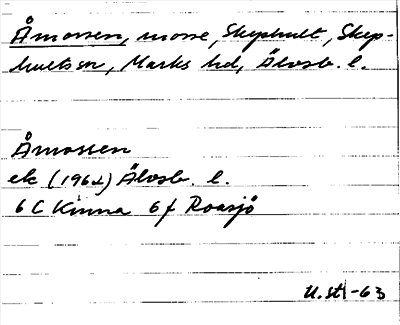 Åmossen, mosse, Skephult, Skep-
hults sn, Marks hd, Älvsb. l.
Åmossen
ek (1962) Älvsb. l.
6 C Kinna 6 f Roasjö
U. St. -63